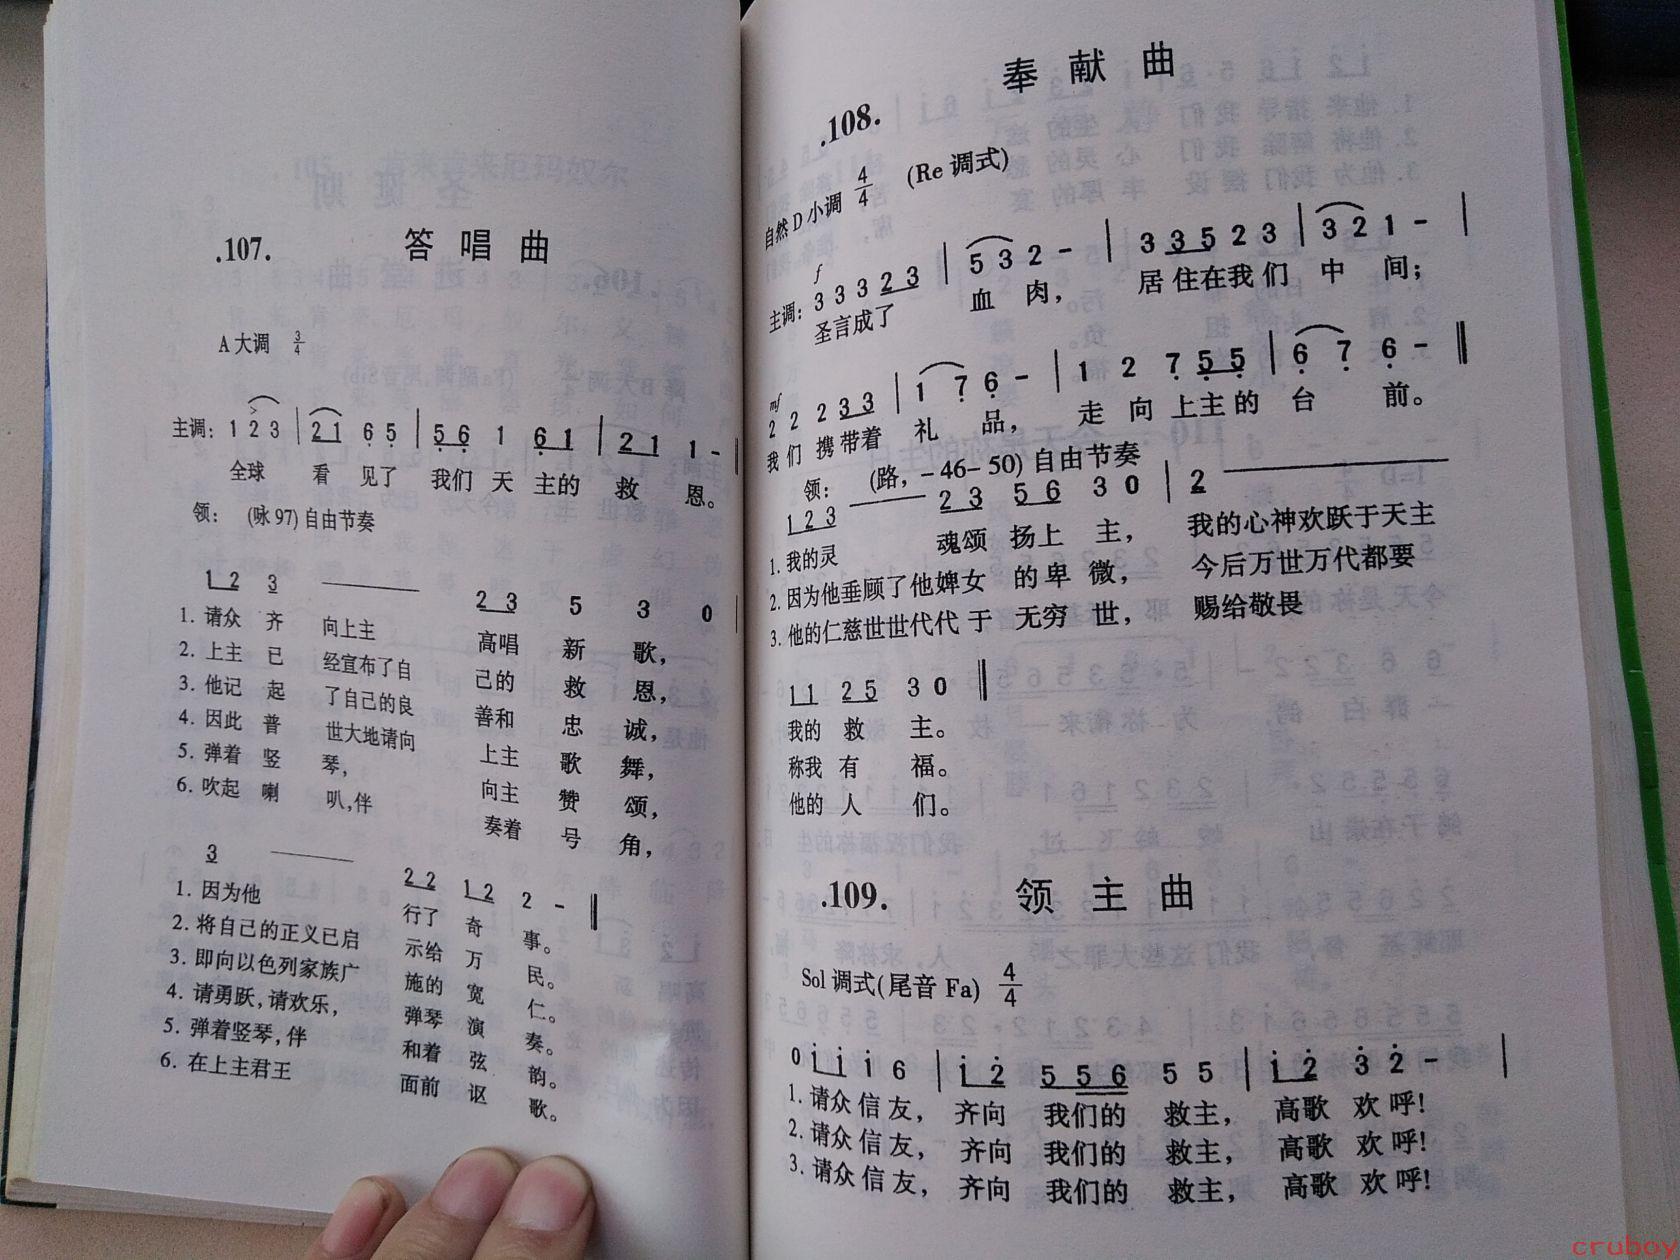 .107. 答唱曲
A大调 3/4
主调: 1 2 3 | 2 1 6 5 | 5 6 1 6 1 | 2 1 1 - ‖
全球 看 见了 我们 天 主的 救 恩。
领: (咏97)自由节奏
1 2 3 ——— 2 3 5 3 0 |
1. 请众 齐 向上主 高唱 新 歌,
2. 上主 已 经宣布了自 己的 救 恩,
3. 他记 起 了自己的良 善和 忠 诚,
4. 因此 普 世大地请向 上主 歌 舞,
5. 弹着 竖 琴, 向主 赞 颂,
6. 吹起 喇 叭,伴 奏着 号 角,
3 ——— 2 2 1 2 2 - ‖
1. 因为他 行了 奇 事。
2. 将自己的正义已启 示给 万 民。
3. 即向以色列家族广 施的 宽 仁。
4. 请勇跃,请欢乐, 弹琴 演 奏。
5. 弹着竖琴,伴 和着 弦 韵。
6. 在上主君王 面前 讴 歌。
奉献曲
.108.
自然D小调 4/4 (Re调式)
f
主调: 3 3 3 2 3 | 5 3 2 - | 3 3 5 2 3 | 3 2 1 - |
圣言成了 血 肉, 居住在我们 中 间;
mf
2 2 2 3 3 | 1 7 6 - | 1 2 7 5 5 | 6 7 6 - ‖
我们携带着 礼 品, 走 向 上主的 台 前。
领: (路,-46-50)自由节奏
1 2 3 ——— 2 3 5 6 3 0 | 2 ———
1. 我的灵 魂颂 扬上 主, 我的心神欢跃于天主
2. 因为他垂顾了他婢女 的卑 微, 今后万世万代都要
3. 他的仁慈世世代代于 无穷 世, 赐给敬畏
1 1 2 5 3 0 ‖
我的 救 主。
称我 有 福。
他的 人 们。
.109. 领主曲
Sol调式(尾音Fa) 4/4
0 i i i 6 | i 2 5 5 6 5 5 | i 2 3 2 - |
1. 请众信友, 齐向 我们的 救主, 高歌 欢呼!
2. 请众信友, 齐向 我们的 救主, 高歌 欢呼!
3. 请众信友, 齐向 我们的 救主, 高歌 欢呼!
cruboy